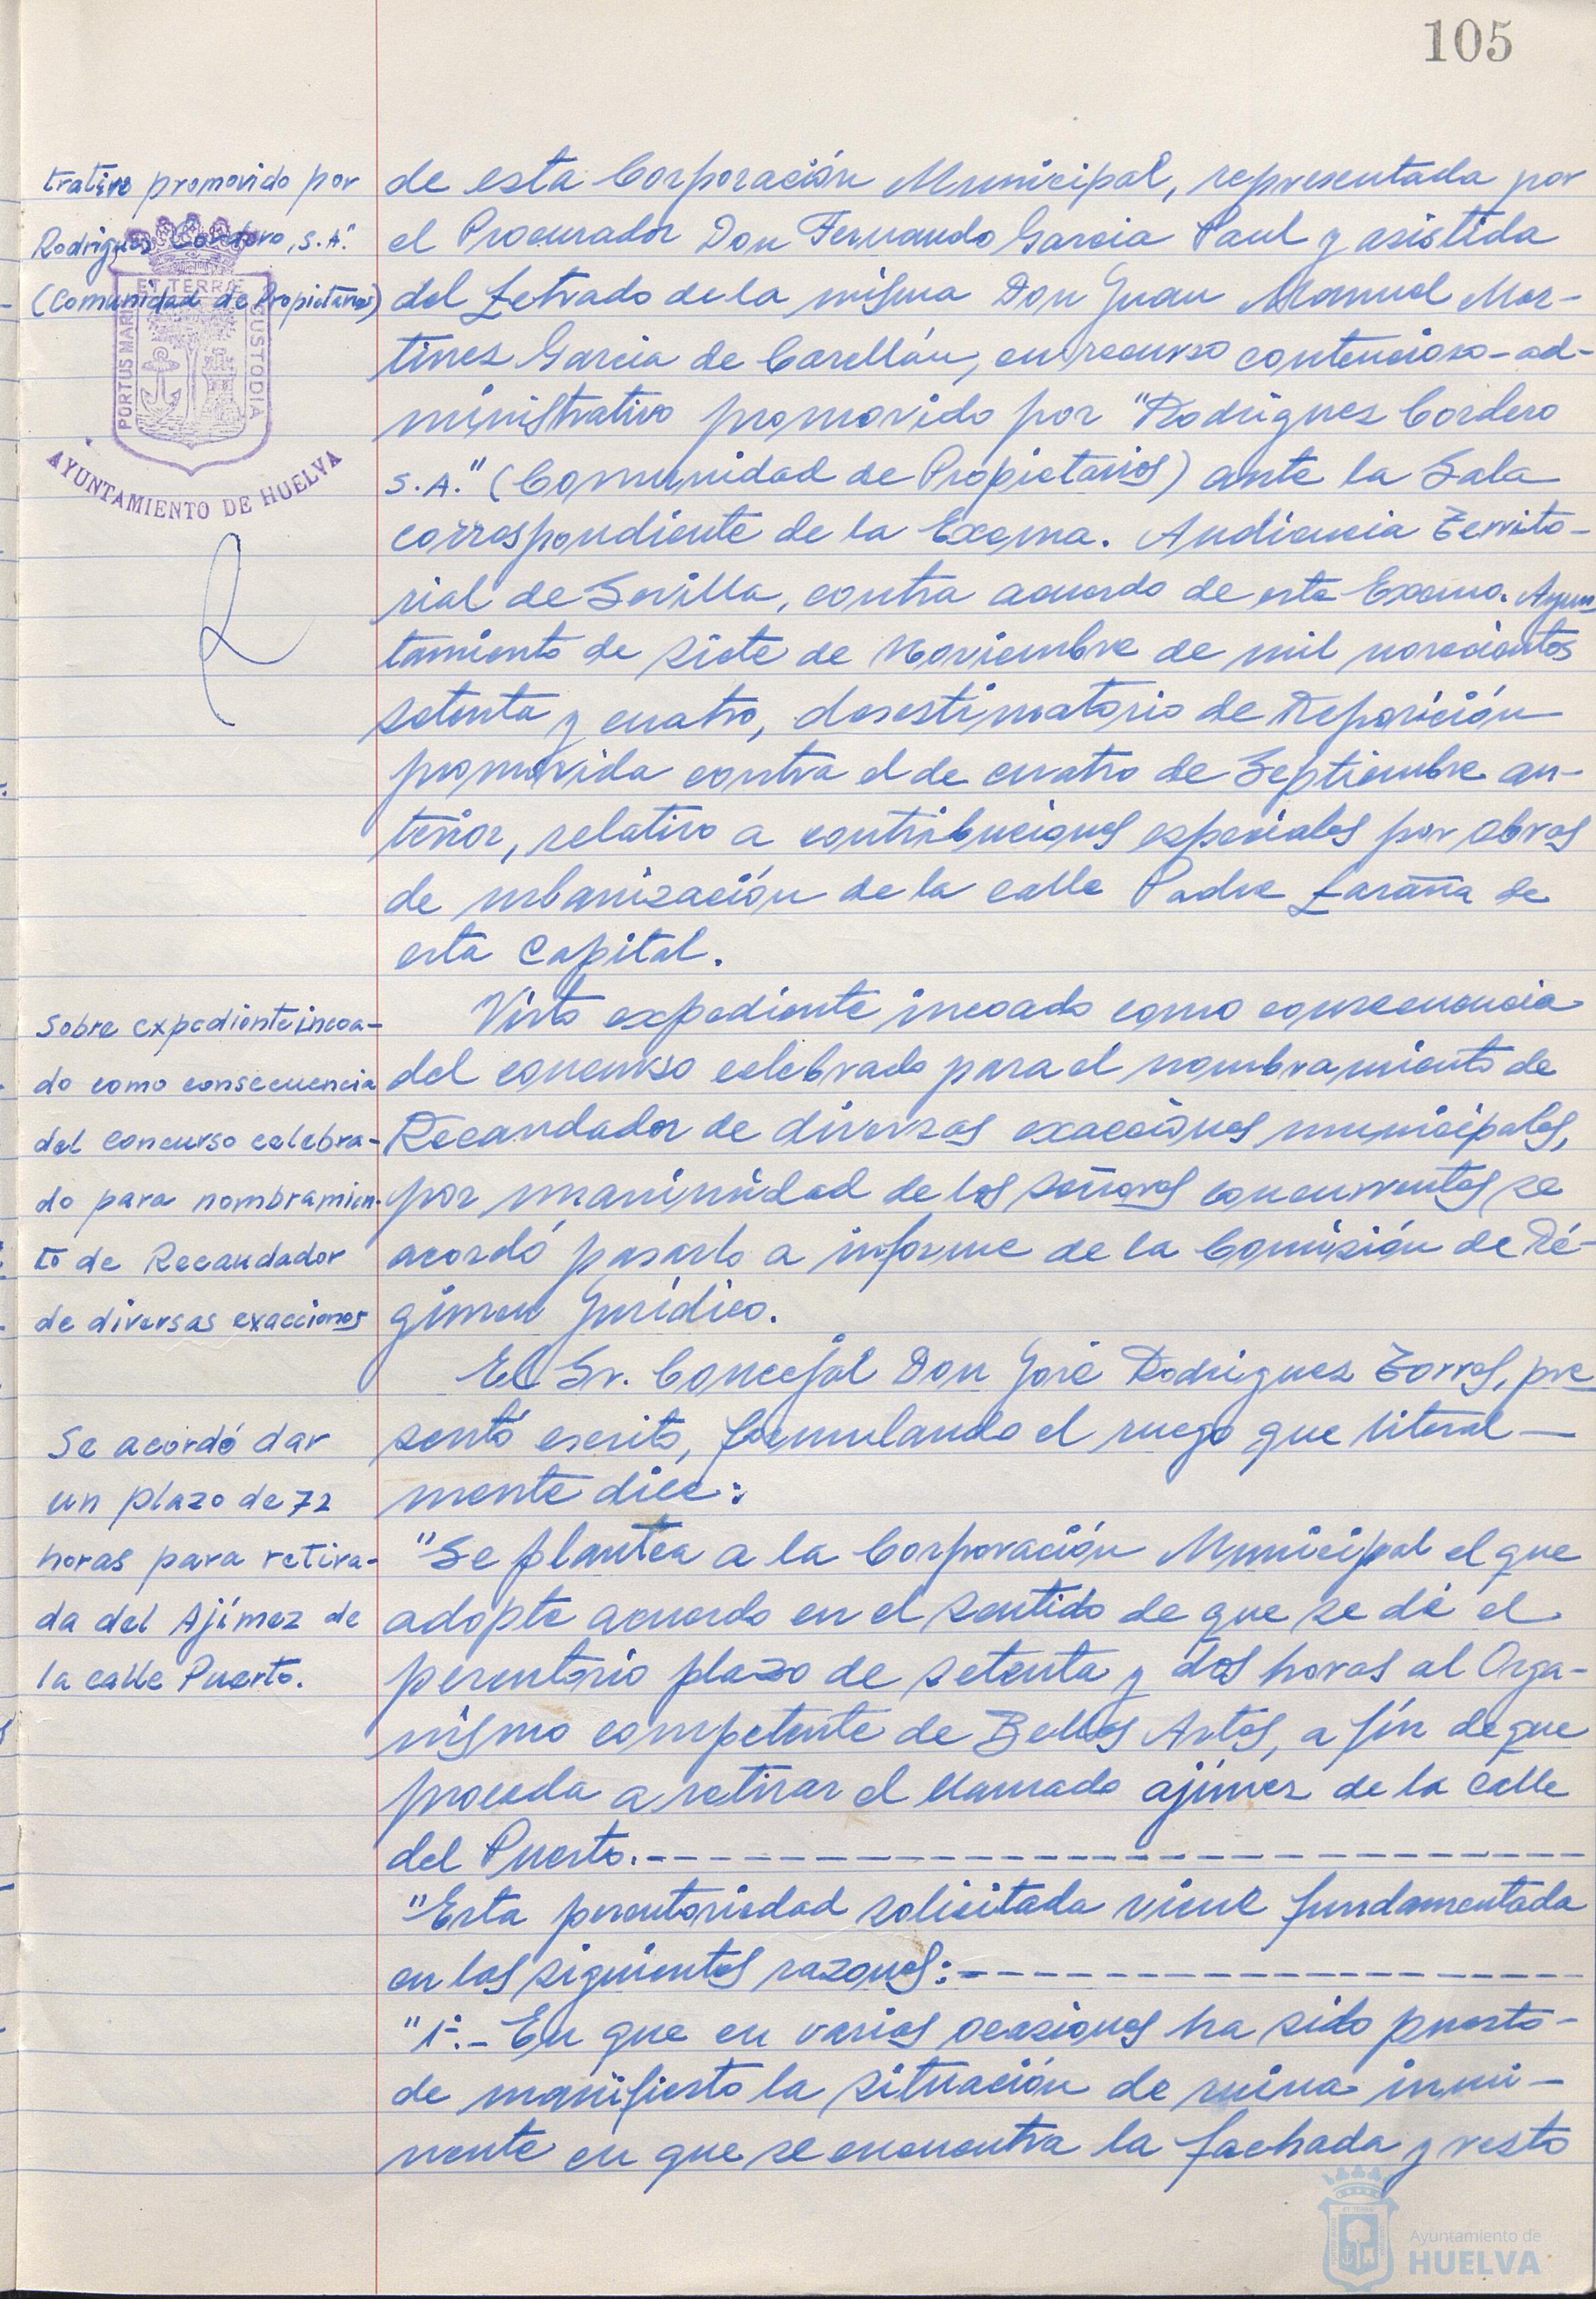 105
trativo promovido por
Rodriguez Cordero, S.A."
(Comunidad de Propietarios)
ET TERRÆ
PORTUS MARIS
CUSTODIA
AYUNTAMIENTO DE HUELVA
de esta Corporación Municipal, representada por
el Procurador Don Fernando Garcia Paul y asistida
del Letrado de la misma Don Juan Manuel Mar-
tinez Garcia de Carellán, en recurso contencioso-ad-
ministrativo promovido por "Rodriguez Cordero
S.A." (Comunidad de Propietarios) ante la Sala
correspondiente de la Excma. Audiencia Territo-
rial de Sevilla, contra acuerdo de este Excmo. Ayun
tamiento de siete de Noviembre de mil novecientos
setenta y cuatro, desestimatorio de Reposición
promovida contra el de cuatro de Septiembre an-
terior, relativo a contribuciones especiales por obras
de urbanización de la calle Padre Laraña de
esta Capital.
Sobre expediente incoa-
do como consecuencia
del concurso celebra-
do para nombramien-
to de Recaudador
de diversas exacciones
Visto expediente incoado como consecuencia
del concurso celebrado para el nombramiento de
Recaudador de diversas exacciones municipales,
por unanimidad de los señores concurrentes se
acordó pasarlo a informe de la Comisión de Ré-
gimen Jurídico.
Se acordó dar
un plazo de 72
horas para retira-
da del Ajímez de
la calle Puerto.
El Sr. Concejal Don José Rodriguez Torres, pre
sentó escrito, formulando el ruego que literal-
mente dice:
"Se plantea a la Corporación Municipal el que
adopte acuerdo en el sentido de que se dé el
perentorio plazo de setenta y dos horas al Orga-
nismo competente de Bellas Artes, a fín de que
proceda a retirar el llamado ajimez de la calle
del Puerto.-
"Esta perentoriedad solicitada viene fundamentada
en las siguientes razones:-
"1º.- En que en varias ocasiones ha sido puesto-
de manifiesto la situación de ruina inmi-
nente en que se encuentra la fachada y resto
Ayuntamiento de
HUELVA